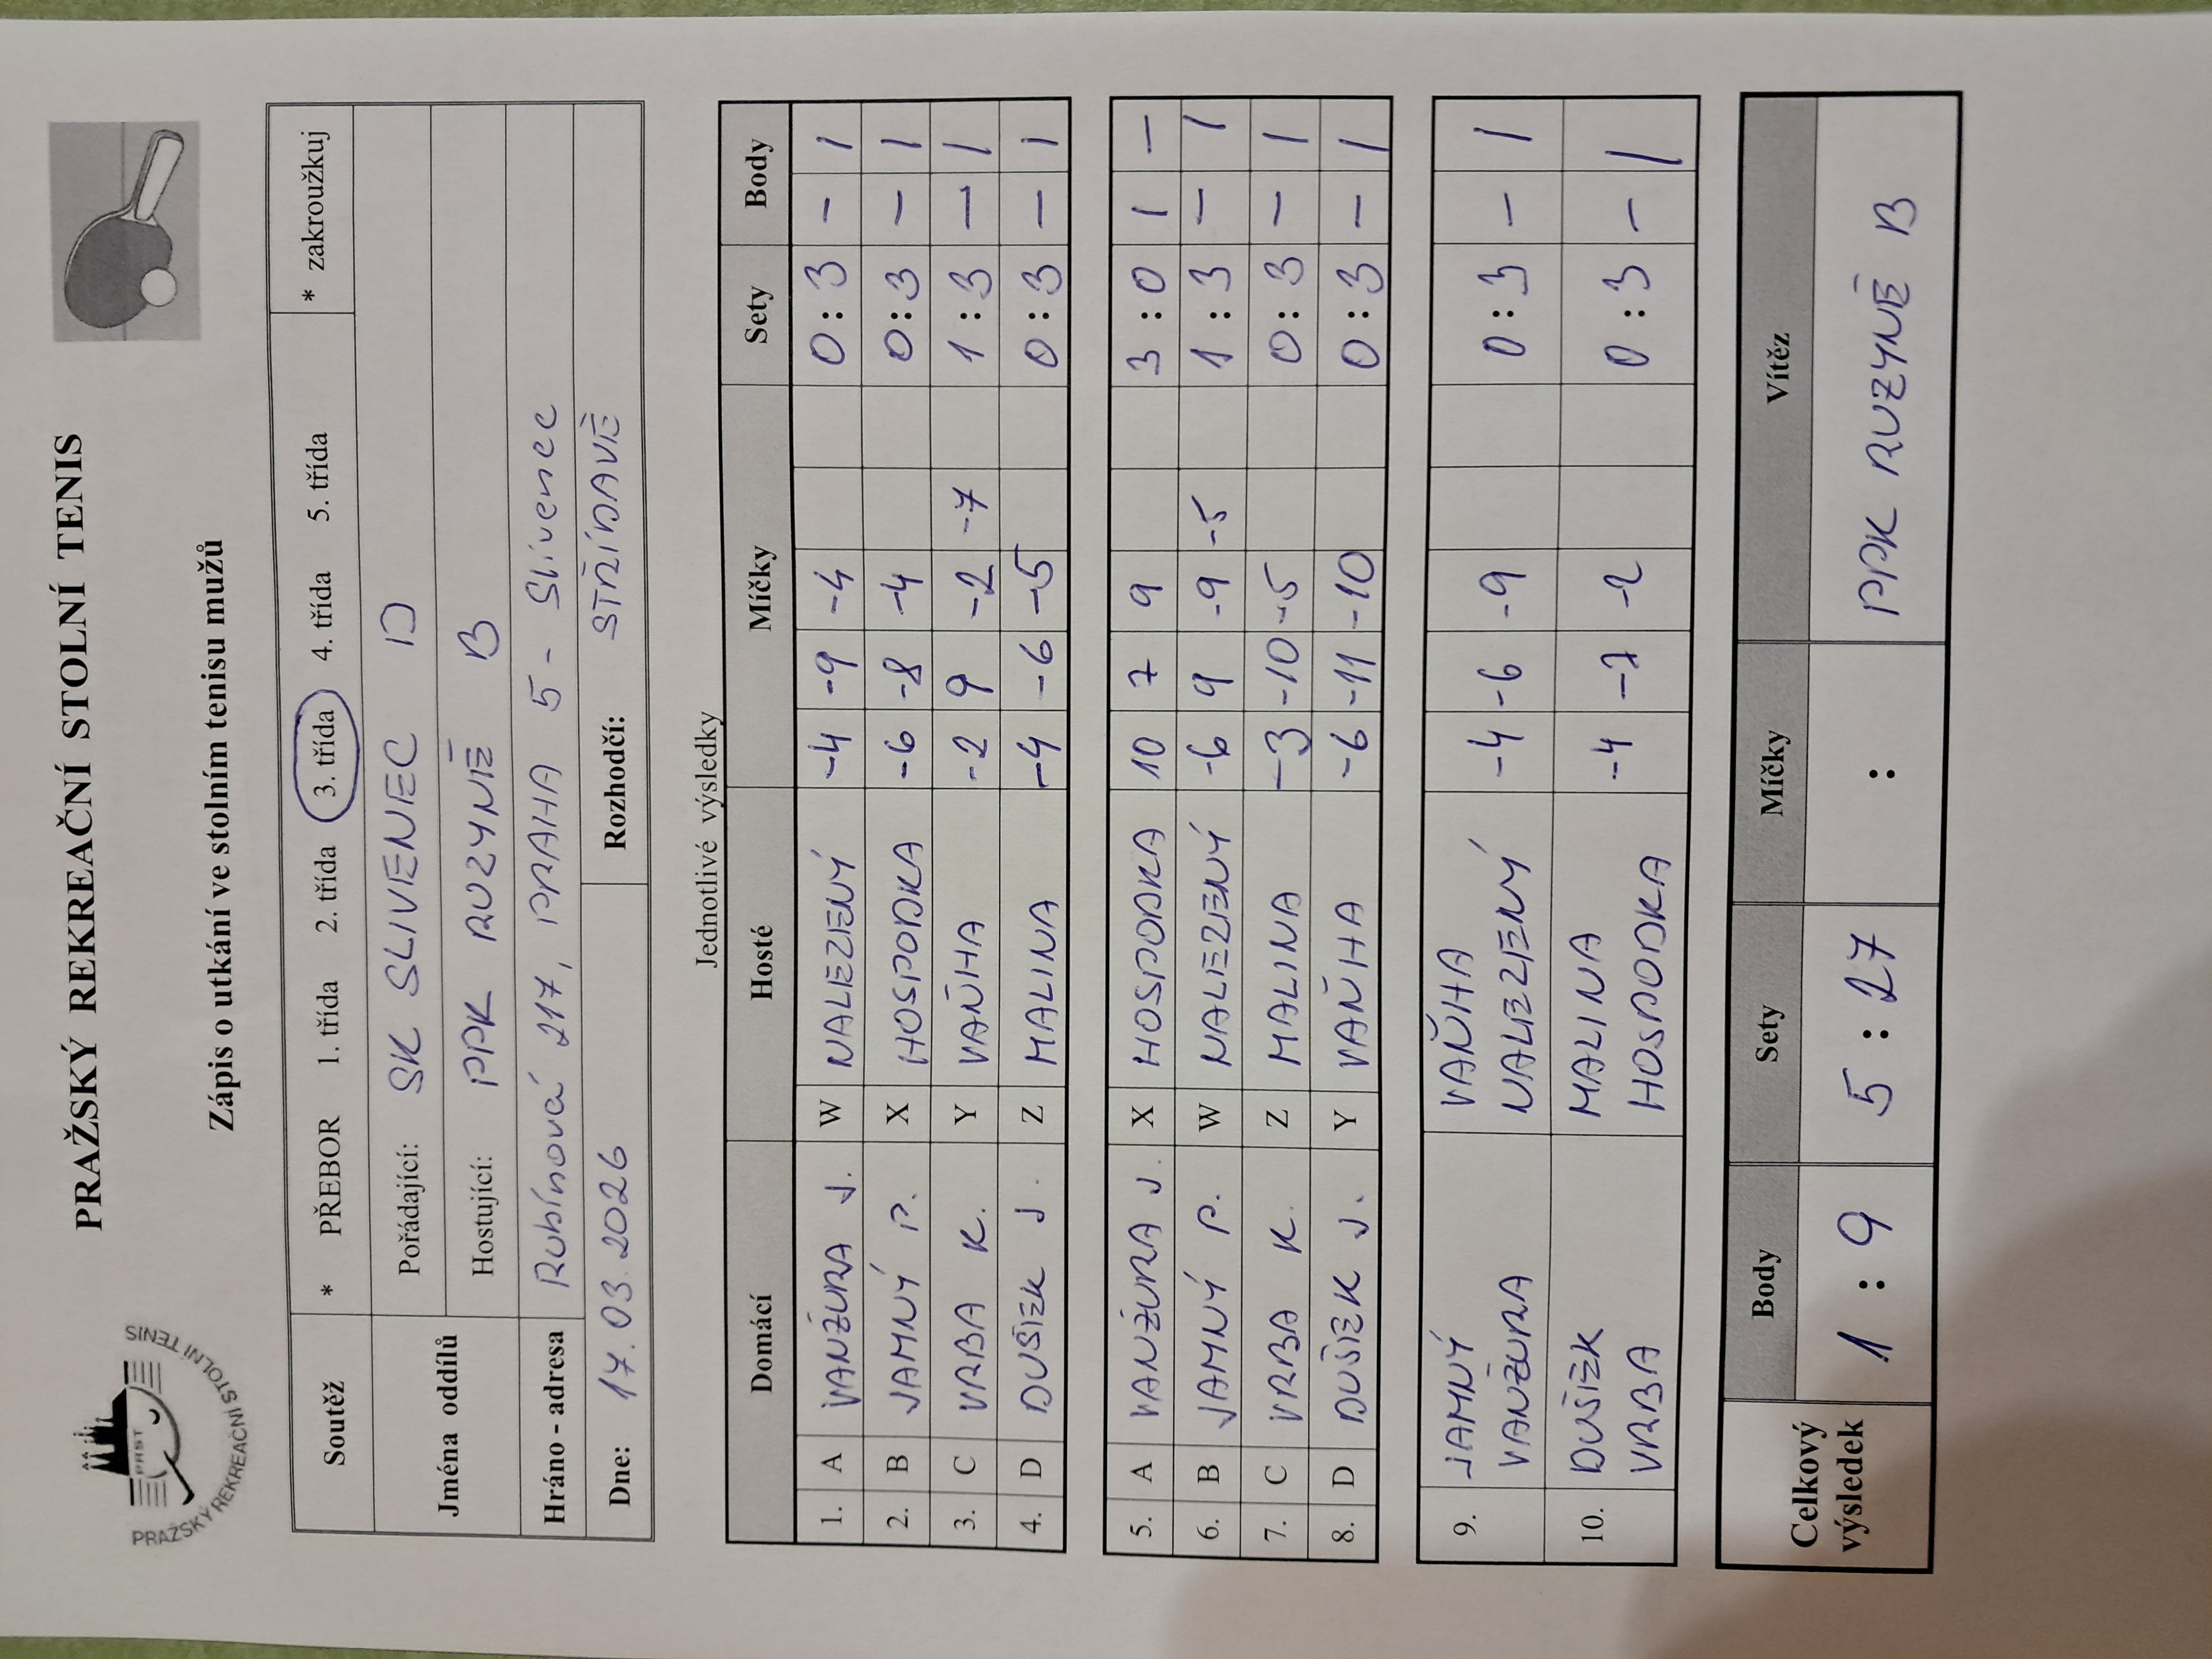 PRAŽSKÝ REKREAČNÍ STOLNÍ TENIS
PRST
PRAŽSKÝ REKREAČNÍ STOLNÍ TENIS
Zápis o utkání ve stolním tenisu mužů
Soutěž * PŘEBOR 1. třída 2. třída 3. třída 4. třída 5. třída * zakroužkuj
Jména oddílů Pořádající: SK SLIVENEC D
Hostující: PPK RUZYNĚ B
Hráno - adresa Rubínová 217, PRAHA 5 - Slivenec
Dne: 17.03.2026 Rozhodčí: STŘÍDAVĚ
Jednotlivé výsledky
Domácí Hosté Míčky Sety Body
1. A VANŽURA J. W NALEZENÝ -4 -9 -4 0 : 3 - 1
2. B JAMNÝ P. X HOSPODKA -6 -8 -4 0 : 3 - 1
3. C VRBA K. Y VAŇHA -2 9 -2 -7 1 : 3 - 1
4. D DUŠEK J. Z MALINA -4 -6 -5 0 : 3 - 1
5. A VANŽURA J. X HOSPODKA 10 7 9 3 : 0 1 -
6. B JAMNÝ P. W NALEZENÝ -6 9 -9 -5 1 : 3 - 1
7. C VRBA K. Z MALINA -3 -10 -5 0 : 3 - 1
8. D DUŠEK J. Y VAŇHA -6 -11 -10 0 : 3 - 1
9. JAMNÝ VAŇHA -4 -6 -9 0 : 3 - 1
VANŽURA NALEZENÝ
10. DUŠEK MALINA -4 -7 -2 0 : 3 - 1
VRBA HOSPODKA
Celkový výsledek Body Sety Míčky Vítěz
1 : 9 5 : 27 : PPK RUZYNĚ B